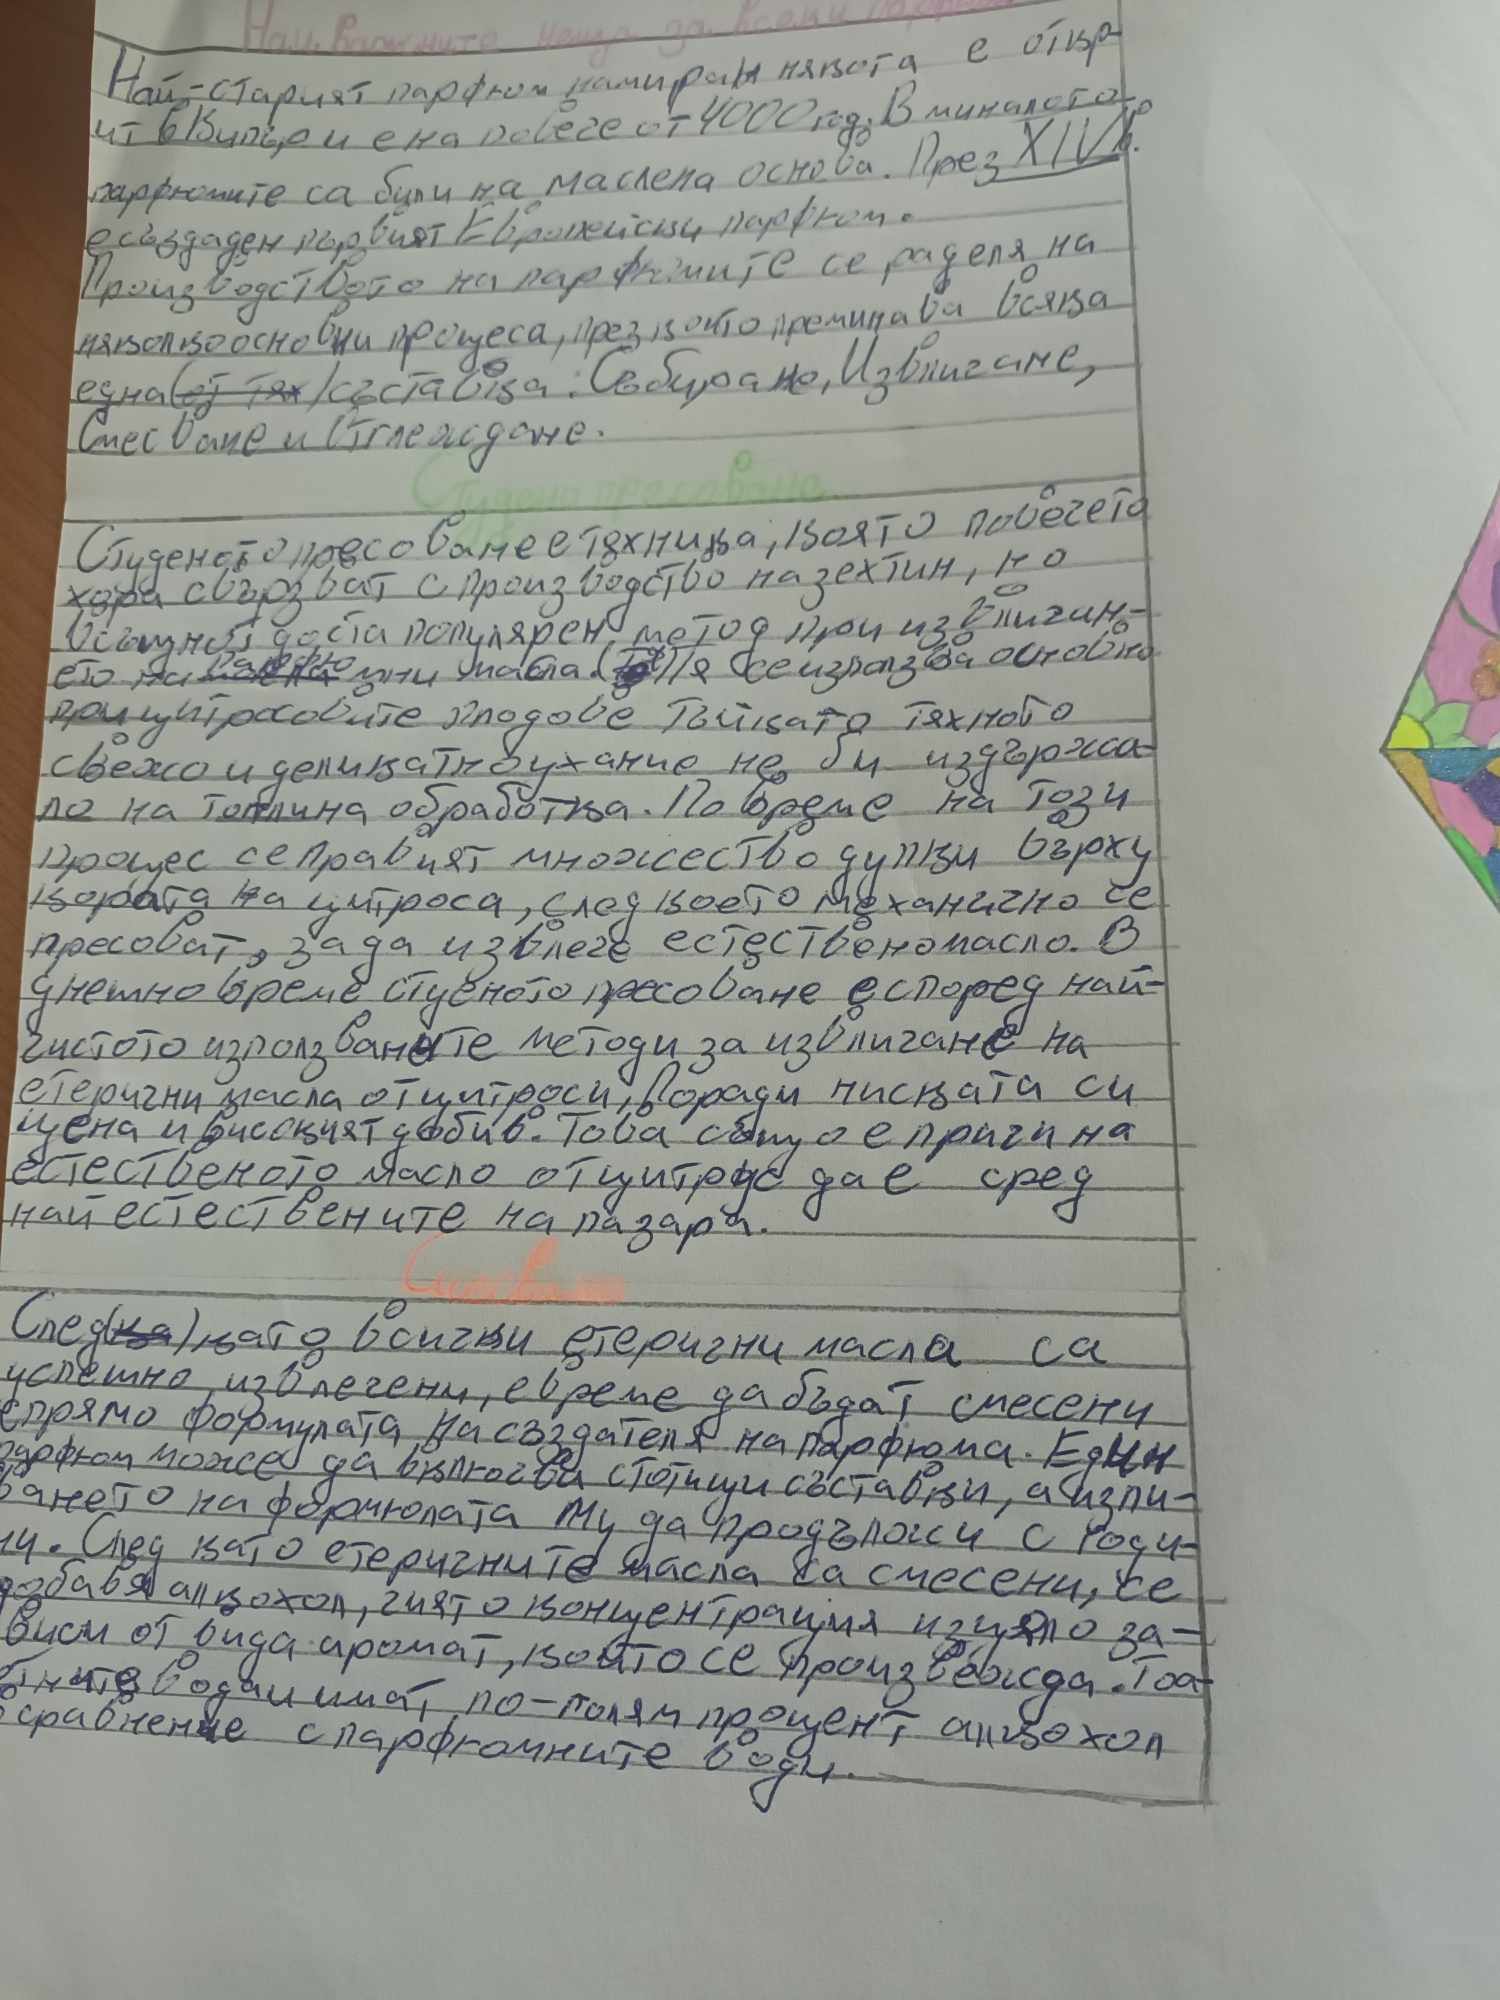 Най-важните неща за всеки парфюм
Най-старият парфюм намиран някога е откр-
ит в Кипър и е на повече от 4000 год. В миналото
парфюмите са били на маслена основа. През XIV в.
е създаден първият Европейски парфюм.
Производството на парфюмите се раделя на
няколко основни процеса, през които преминава всяка
една (от тях) съставка: Събиране, Извличане,
Смесване и Отглеждане.
Студено пресоване
Студеното пресоване е техника, която повечето
хора свързват с производство на зехтин, но
всъщност доста популярен метод при извличан-
ето на парфюмни масла. Тя се използва основно
при цитросовите плодове тъйкато тяхното
свежо и деликатно ухание не би издържа-
ло на топлина обработка. По време на този
процес се правият множество дупки върху
кората на цитроса, след което механично се
пресоват, за да извлече естествено масло. В
днешно време студеното пресоване е според най-
чистото използваните методи за извличане на
етерични масла от цитроси, Поради ниската си
цена и високият добив. Това също е причина
естественото масло от цитрос да е сред
най естествените на пазара.
Смесване
След (ка) като всички етерични масла са
успешно извлечени, е време да бъдат смесени
спрямо формулата на създателя на парфюма. Един
парфюм може да включва стотици съставки, а изпи-
ването на формюлата му да продължи с годи-
ни. След като етеричните масла са смесени, се
добавя алкохол, чиято концентрация изцяло за-
виси от вида аромат, който се произвежда. Тоа-
летните води имат по-голям процент алкохол
в сравнение с парфюмните води.